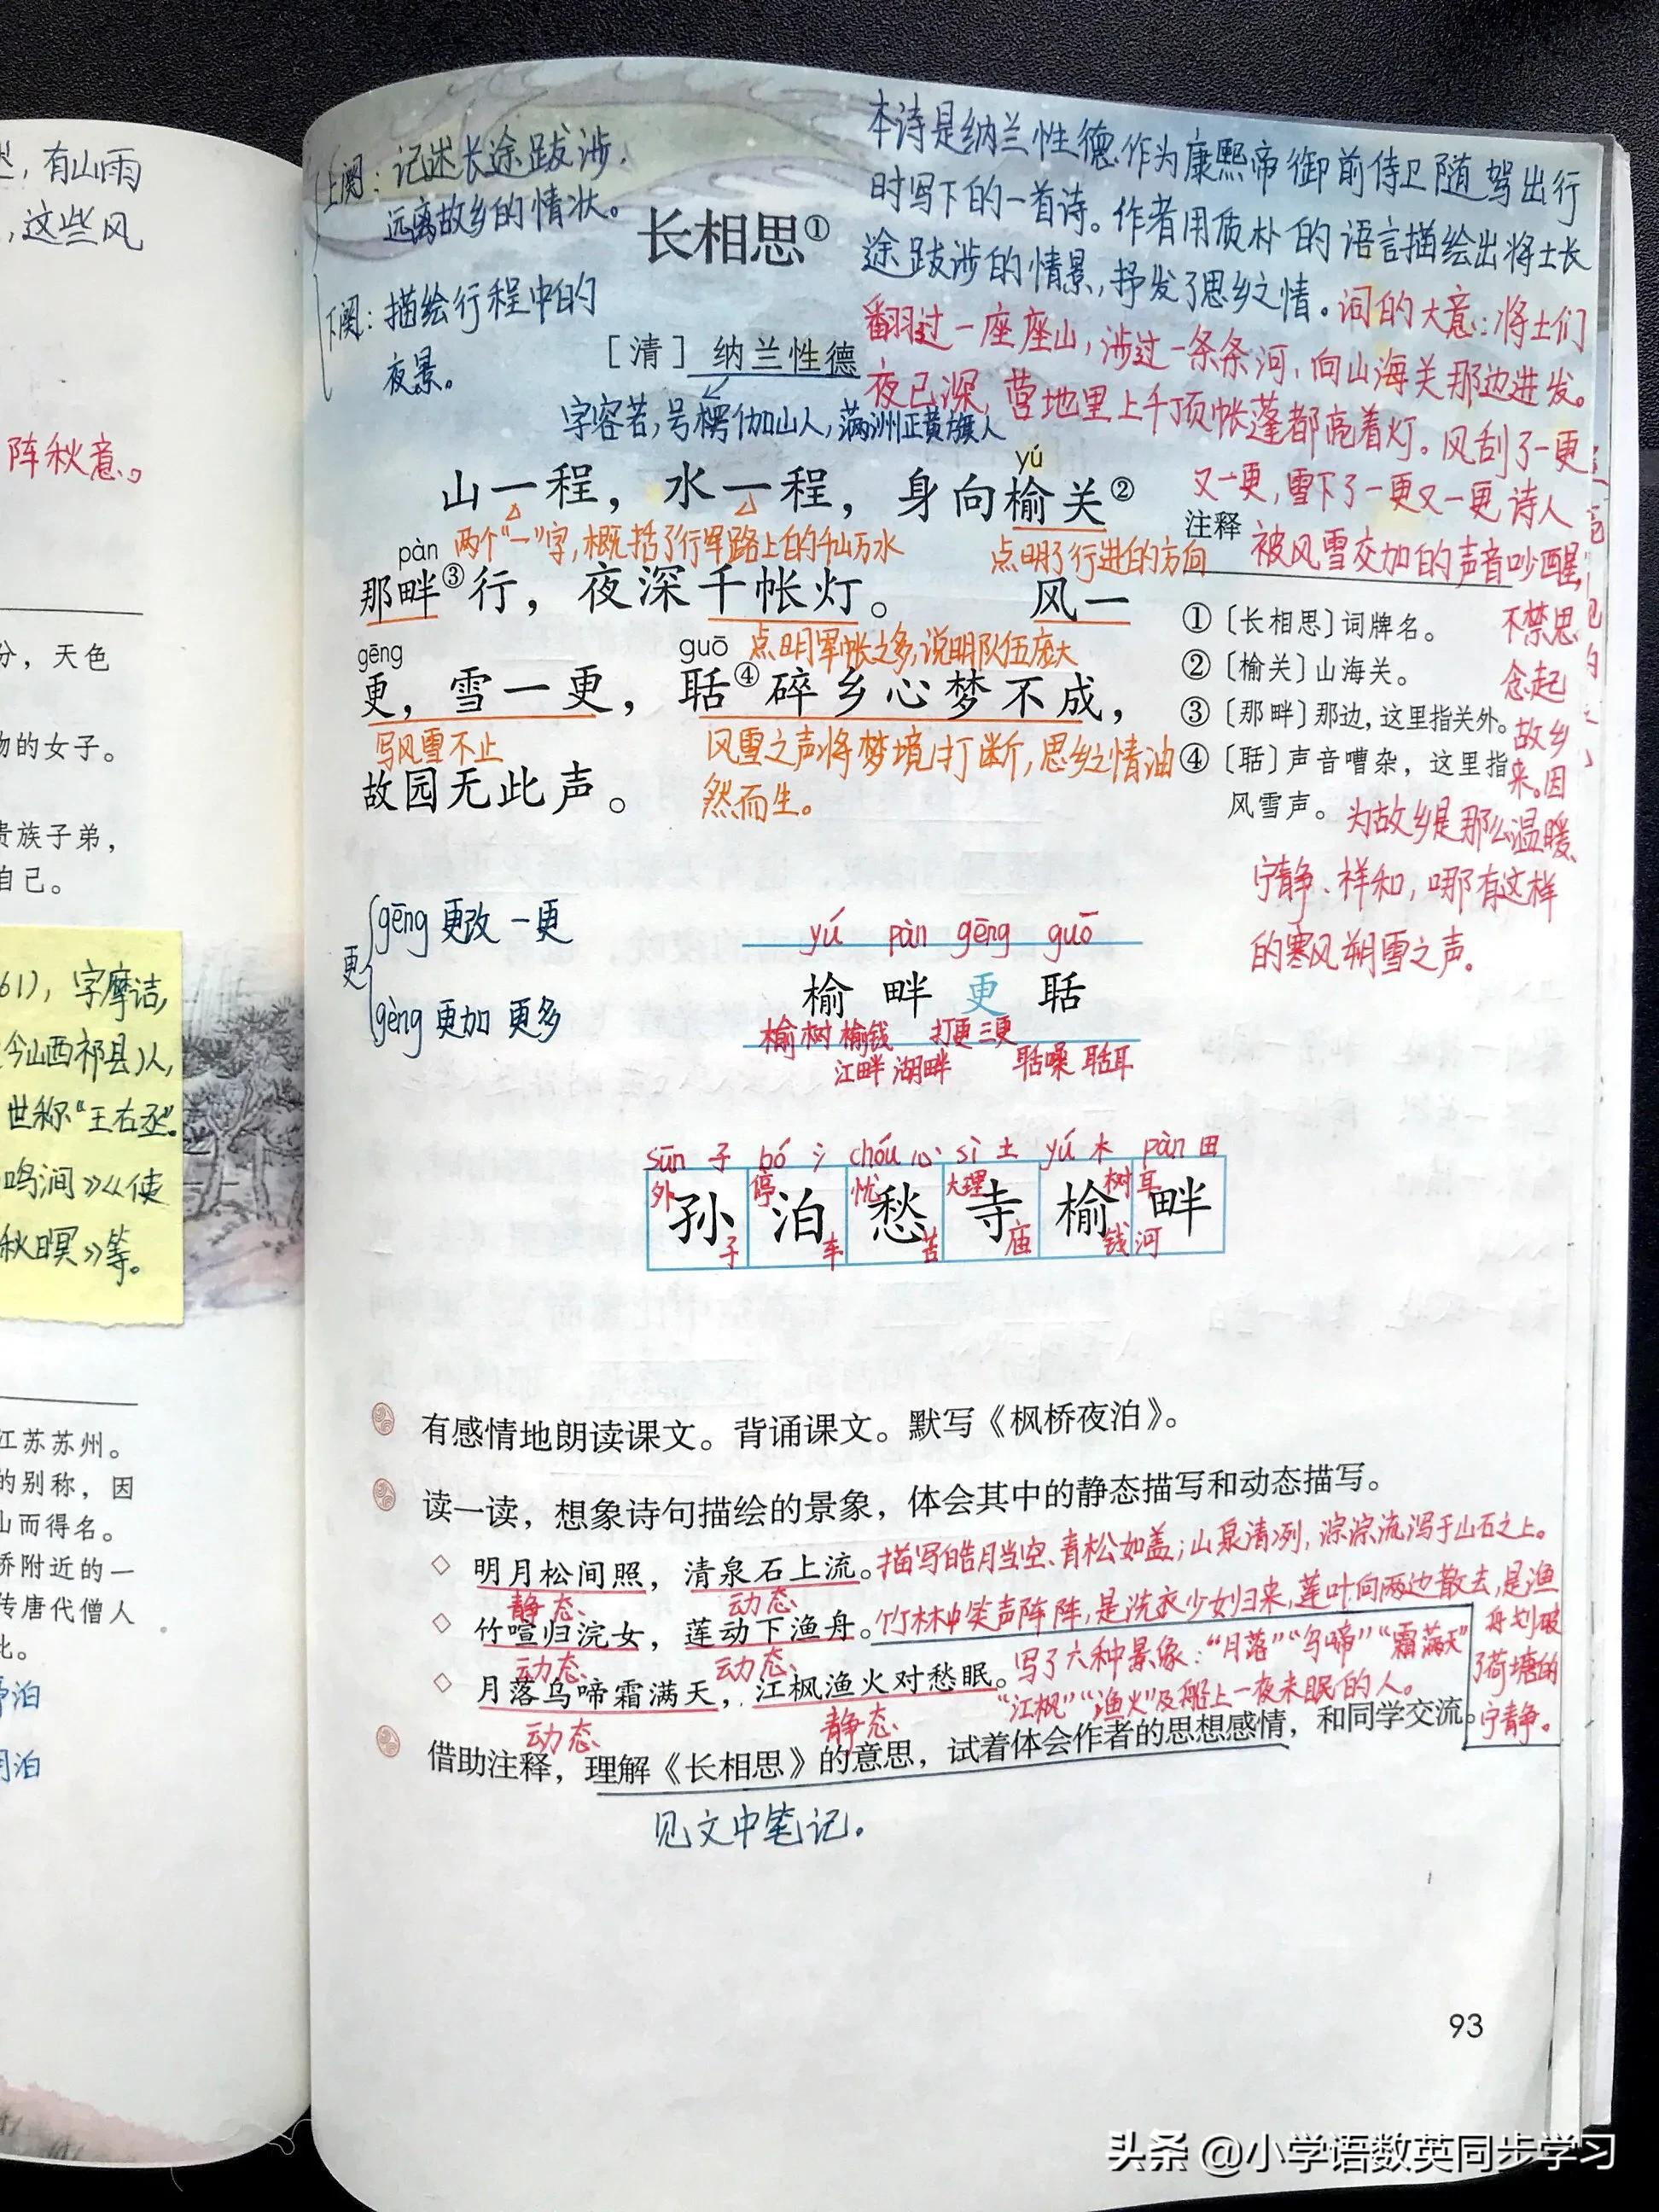 有山雨
,这些风
阵秋意。
分，天色
物的女子。
贵族子弟，
自己。
61)，字摩诘，
今山西祁县)人，
世称“王右丞”。
鸣涧》《使
秋暝》等。
江苏苏州。
的别称，因
山而得名。
桥附近的一
传唐代僧人
比。
泊
泊
上阕：记述长途跋涉、
远离故乡的情状。
下阕：描绘行程中的
夜景。
长相思①
［清］纳兰性德
字容若，号楞伽山人，满洲正黄旗人
本诗是纳兰性德作为康熙帝御前侍卫随驾出行
时写下的一首诗。作者用质朴的语言描绘出将士长
途跋涉的情景，抒发了思乡之情。词的大意：将士们
翻过一座座山，涉过一条条河，向山海关那边进发。
夜已深，营地里上千顶帐蓬都亮着灯。风刮了一更
又一更，雪下了一更又一更诗人
被风雪交加的声音吵醒，
不禁思
念起
故乡
来。因
为故乡是那么温暖、
宁静、祥和，哪有这样
的寒风朔雪之声。
yú
山一程，水一程，身向榆关②
两个“一”字，概括了行军路上的千山万水
点明了行进的方向
pàn
那畔③行，夜深千帐灯。 风一
点明军帐之多，说明队伍庞大
gēng guō
更，雪一更，聒④碎乡心梦不成，
写风雪不止
风雪之声将梦境打断，思乡之情油
然而生。
故园无此声。
注释
①〔长相思〕词牌名。
②〔榆关〕山海关。
③〔那畔〕那边，这里指关外。
④〔聒〕声音嘈杂，这里指
风雪声。
更
gēng 更改 一更
gèng 更加 更多
yú pàn gēng guō
榆 畔 更 聒
榆树 榆钱 打更 三更
江畔 湖畔 聒噪 聒耳
sūn 子 bó 氵 chóu 心 sì 土 yú 木 pàn 田
外 停 忧 大理 树 耳
孙 泊 愁 寺 榆 畔
子 车 苦 庙 钱 河
有感情地朗读课文。背诵课文。默写《枫桥夜泊》。
读一读，想象诗句描绘的景象，体会其中的静态描写和动态描写。
◇ 明月松间照，清泉石上流。描写皓月当空、青松如盖；山泉清冽，淙淙流泻于山石之上。
静态 动态
◇ 竹喧归浣女，莲动下渔舟。竹林中笑声阵阵，是洗衣少女归来，莲叶向两边散去，是渔
舟划破
了荷塘的
宁静。
动态 动态
◇ 月落乌啼霜满天，江枫渔火对愁眠。写了六种景像：“月落”“乌啼”“霜满天”
“江枫”“渔火”及船上一夜未眠的人。
动态 静态
借助注释，理解《长相思》的意思，试着体会作者的思想感情，和同学交流。
见文中笔记。
93
头条 @小学语数英同步学习